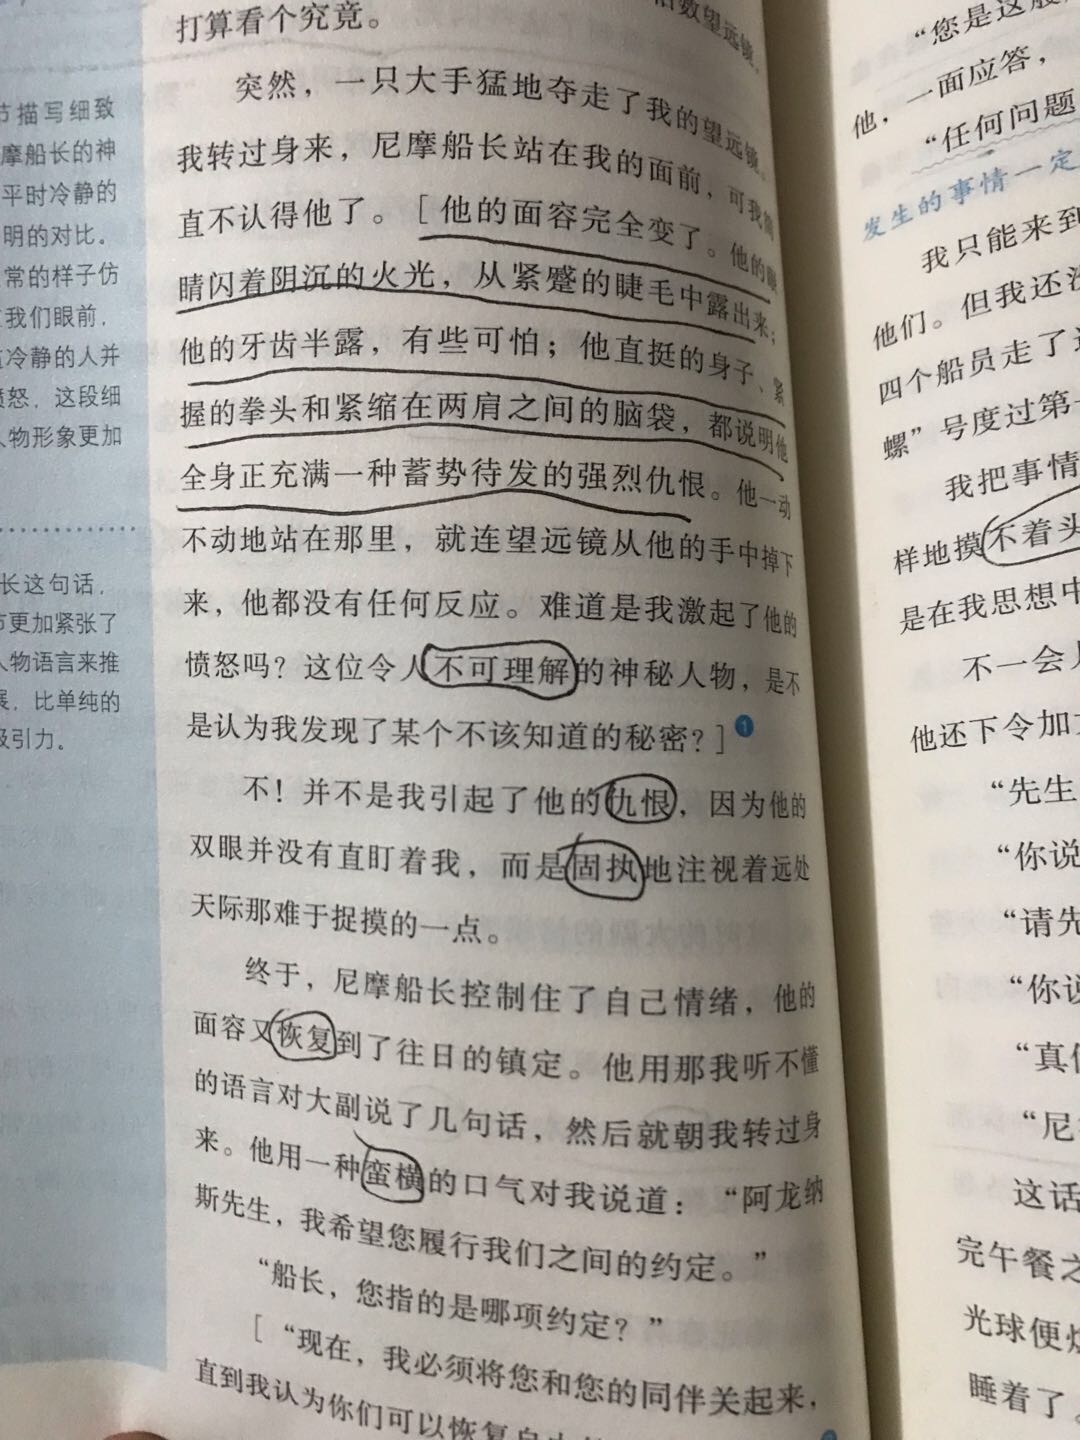 节描写细致
摩船长的神
平时冷静的
明的对比。
常的样子仿
我们眼前,
冷静的人并
愤怒,这段细
人物形象更加
长这句话,
节更加紧张了
人物语言来推
展,比单纯的
吸引力。
数望远镜,
打算看个究竟。
突然,一只大手猛地夺走了我的望远镜。
我转过身来,尼摩船长站在我的面前,可我简
直不认得他了。[他的面容完全变了。他的眼
睛闪着阴沉的火光,从紧蹙的睫毛中露出来;
他的牙齿半露,有些可怕;他直挺的身子、紧
握的拳头和紧缩在两肩之间的脑袋,都说明他
全身正充满一种蓄势待发的强烈仇恨。他一动
不动地站在那里,就连望远镜从他的手中掉下
来,他都没有任何反应。难道是我激起了他的
愤怒吗?这位令人不可理解的神秘人物,是不
是认为我发现了某个不该知道的秘密?]1
不!并不是我引起了他的仇恨,因为他的
双眼并没有直盯着我,而是固执地注视着远处
天际那难于捉摸的一点。
终于,尼摩船长控制住了自己情绪,他的
面容又恢复到了往日的镇定。他用那我听不懂
的语言对大副说了几句话,然后就朝我转过身
来。他用一种蛮横的口气对我说道:“阿龙纳
斯先生,我希望您履行我们之间的约定。”
“船长,您指的是哪项约定?”
[“现在,我必须将您和您的同伴关起来,
直到我认为你们可以恢复自由
“您是这
他,一面应答,
“任何问题
发生的事情一定
我只能来到
他们。但我还没
四个船员走了
螺”号度过第一
我把事情
样地摸不着头
是在我思想中
不一会儿
他还下令加
“先生
“你说
“请先
“你说
“真
“尼
这话
完午餐之
光球便
睡着了。